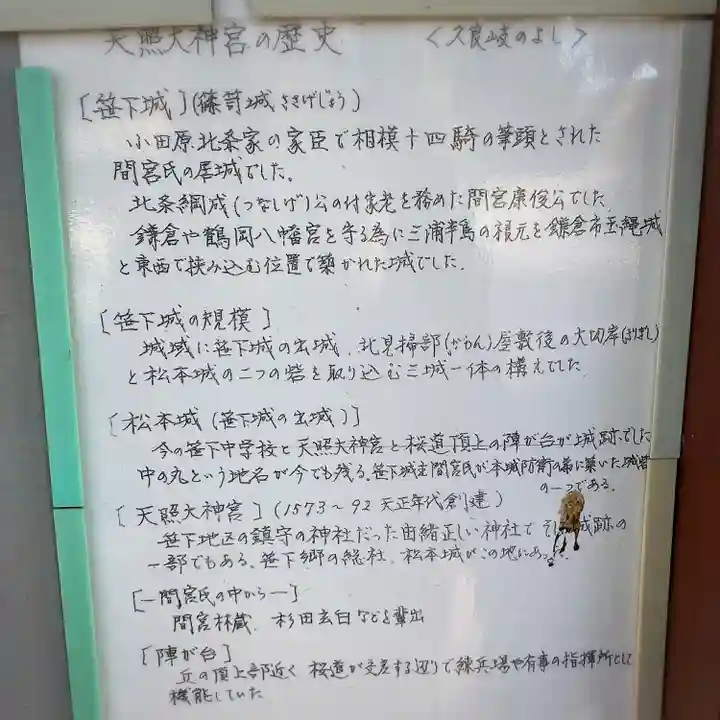 天照大神宮の歴史 <久良岐のよし>
[笹下城](篠笥城 ささげじょう)
小田原北条家の家臣で相模十四騎の筆頭とされた
間宮氏の居城でした。
北条綱成(つなしげ)公の付家老を務めた間宮康俊公でした。
鎌倉や鶴岡八幡宮を守る為に三浦半島の根元を鎌倉市玉縄城
と東西で挟み込む位置で築かれた城でした。
[笹下城の規模]
城域に笹下城の出城、北見掃部(かもん)屋敷後の大切岸(きりぎし)
と松本城の二つの砦を取り込む三城一体の構えでした
[松本城(笹下城の出城)]
今の笹下中学校と天照大神宮と桜道頂上の陣が台が城跡でした
中の丸という地名が今でも残る。笹下城主間宮氏が本城防衛の為に築いた城砦
の一つである。
[天照大神宮](1573~92 天正年代創建)
笹下地区の鎮守の神社だった由緒正しい神社で 城跡の
一部でもある、笹下郷の総社、松本城がこの地にあった
[—間宮氏の中から—]
間宮林蔵、杉田玄白などを輩出
[陣が台]
丘の頂上部近く 桜道が交差する辺りで練兵場や有事の指揮所として
機能していた